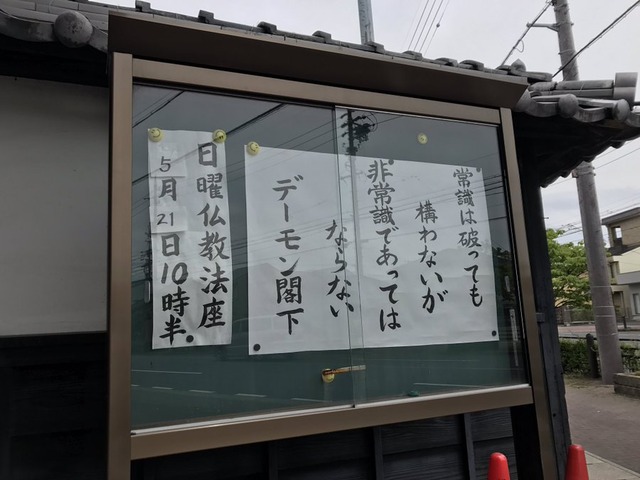 常識は破っても
構わないが
非常識であっては
ならない
デーモン閣下
日曜仏教法座
5月21日10時半